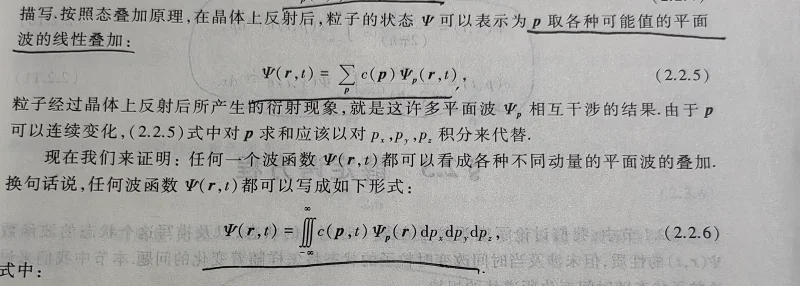 描写.按照态叠加原理,在晶体上反射后,粒子的状态 Ψ 可以表示为 p 取各种可能值的平面
波的线性叠加:
Ψ(r,t) = ∑ₚ c(p) Ψₚ(r,t), (2.2.5)
粒子经过晶体上反射后所产生的衍射现象,就是这许多平面波 Ψₚ 相互干涉的结果.由于 p
可以连续变化,(2.2.5)式中对 p 求和应该以对 pₓ,p_y,p_z 积分来代替.
现在我们来证明:任何一个波函数 Ψ(r,t)都可以看成各种不同动量的平面波的叠加.
换句话说,任何波函数 Ψ(r,t)都可以写成如下形式:
Ψ(r,t) = ∭_{-∞}^{∞} c(p,t) Ψₚ(r) dpₓdp_ydp_z, (2.2.6)
式中: